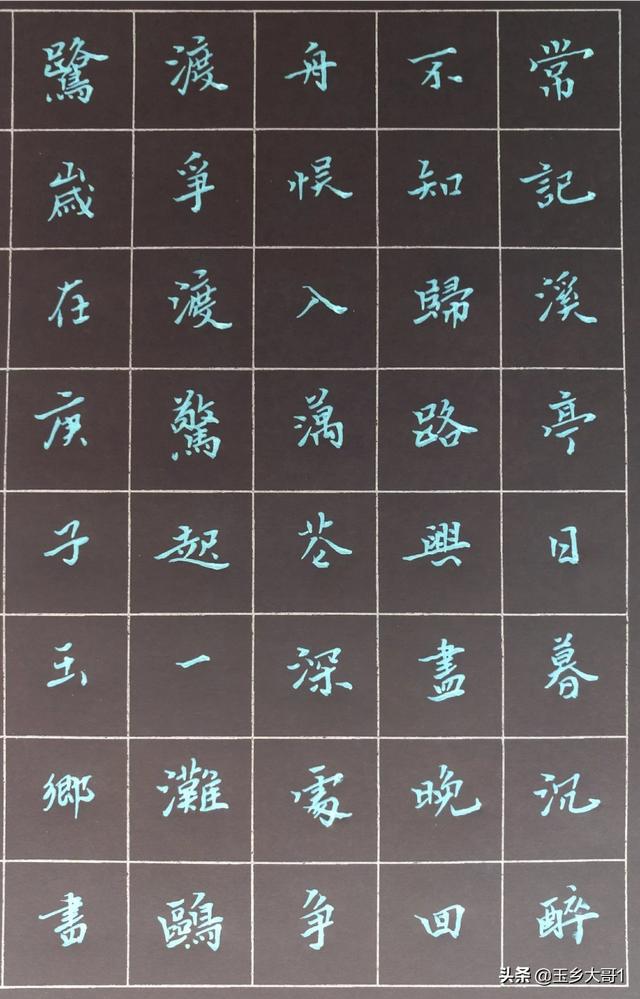 常記溪亭日暮沉醉
不知歸路興盡晚回
舟悞入藕花深處争
渡爭渡驚起一灘鷗
鷺歲在庚子玉鄉書
头条 @玉乡大哥1